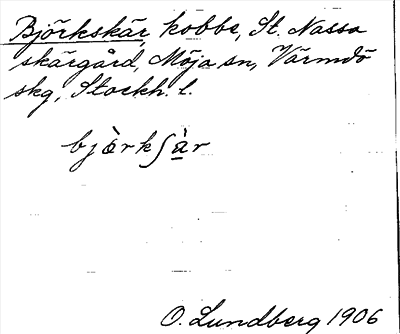 Björkskär, kobbe, St. Nassa
skärgård, Möja sn, Värmdö
skg, Stockh. l.
bjὰrkʃὰ̠r
O. Lundberg 1906